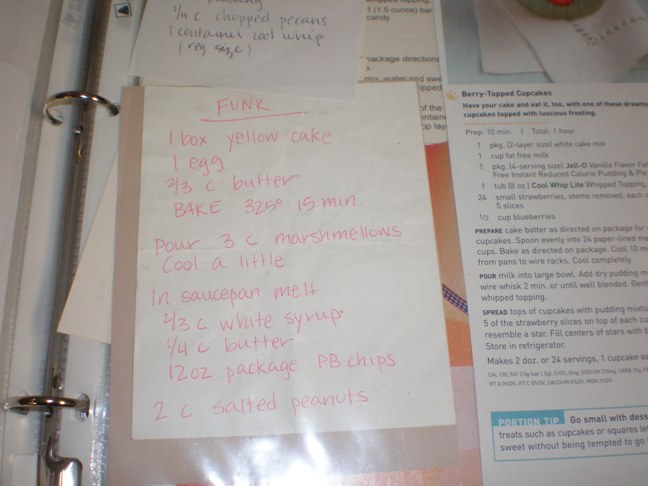 1/4 c chopped pecans
1 container cool whip
(reg size)
1 (1.5 ounce) bar
candy
package directions
FUNK
1 box yellow cake
1 egg
2/3 c butter
BAKE 325° 15 min.
Pour 3 c marshmellows
Cool a little
In saucepan melt
2/3 c white syrup
1/4 c butter
12oz package PB chips
2 c salted peanuts
Berry-Topped Cupcakes
Have your cake and eat it, too, with one of these
cupcakes topped with luscious frosting.
Prep: 10 min. | Total: 1 hour
1 pkg. (2-layer size) white cake mix
1 cup fat free milk
1 pkg. (4-serving size) Jell-O Vanilla Flavor
Free Instant Reduced Calorie Pudding & Pie
1 tub (8 oz.) Cool Whip Lite Whipped Topping,
24 small strawberries, stems removed, each
5 slices
1/2 cup blueberries
PREPARE cake batter as directed on package for
cupcakes. Spoon evenly into 24 paper-lined
cups. Bake as directed on package. Cool 10
from pans to wire racks. Cool completely.
POUR milk into large bowl. Add dry pudding
wire whisk 2 min. or until well blended.
whipped topping.
SPREAD tops of cupcakes with pudding
5 of the strawberry slices on top of each
resemble a star. Fill centers of stars with
Store in refrigerator.
Makes 2 doz. or 24 servings, 1 cupcake
PORTION TIP Go small with
treats such as cupcakes or squares
sweet without being tempted to go